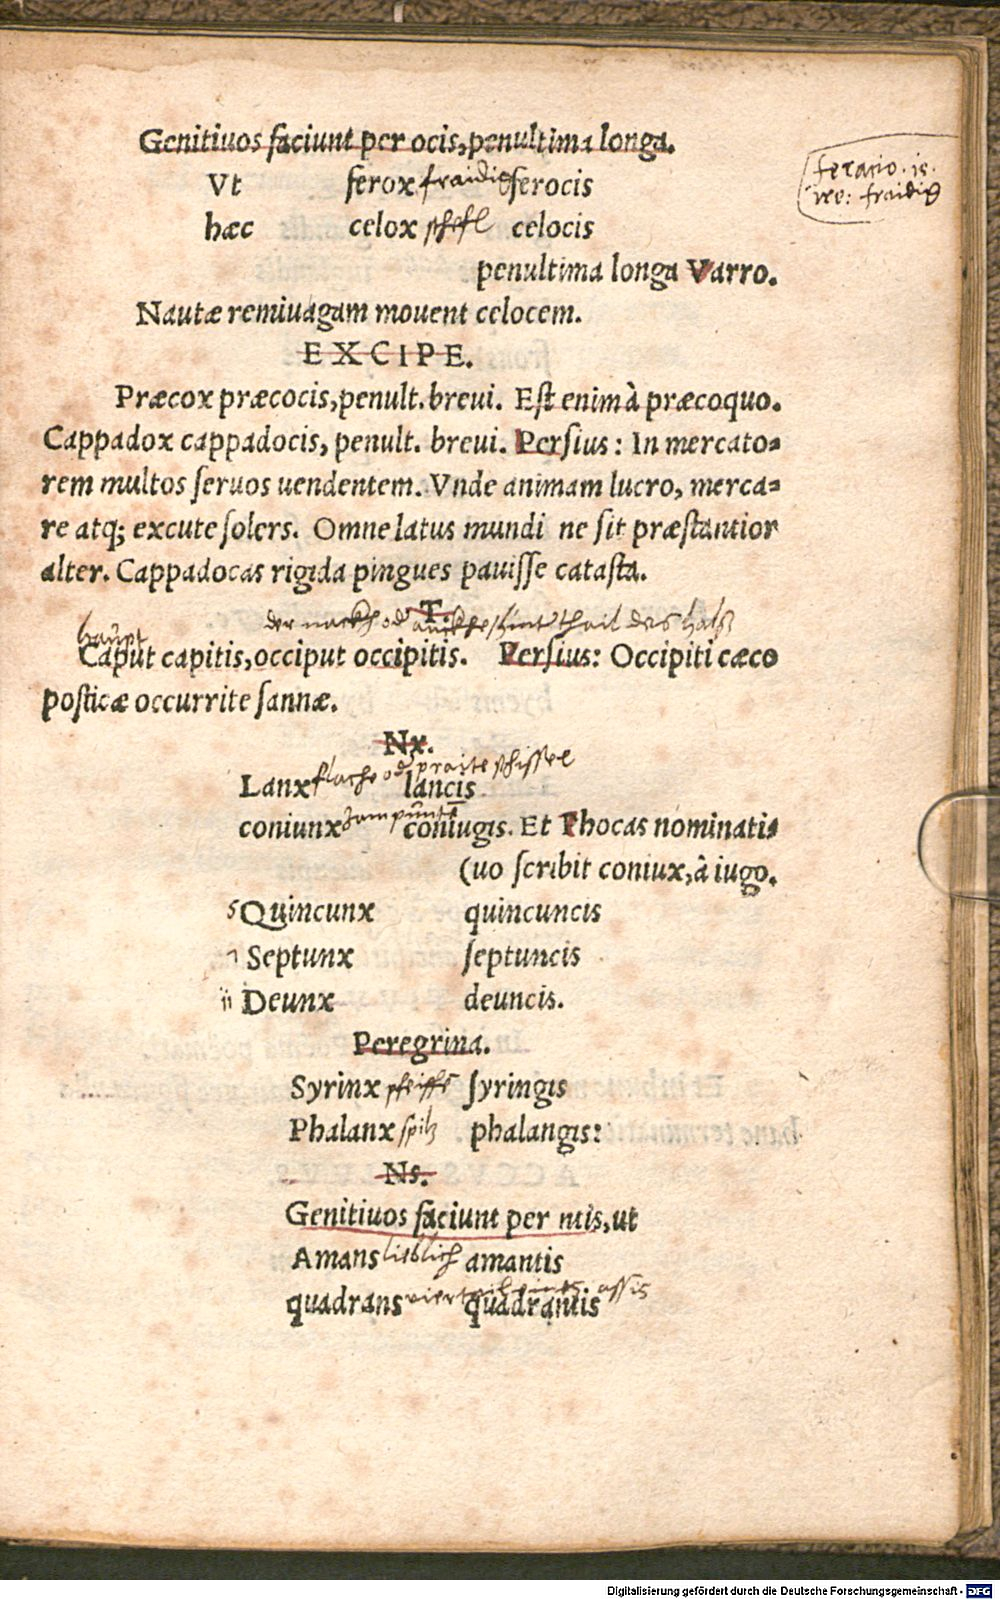 Genitiuos faciunt per ocis, penultima longa.
Vt ferox fraidig ferocis
hæc celox schefl celocis
penultima longa Varro.
Nautæ remiuagam mouent celocem.
EXCIPE.
Præcox præcocis, penult. breui. Est enim à præcoquo.
Cappadox cappadocis, penult. breui. Persius: In mercato=
rem multos seruos uendentem. Vnde animam lucro, merca=
re atq; excute solers. Omne latus mundi ne sit præstantior
alter. Cappadocas rigida pingues pauisse catasta.
T.
der nackh od' hinterthail des halß
haupt
Caput capitis, occiput occipitis. Persius: Occipiti cæco
posticæ occurrite sannæ.
Nx.
Lanx flache od' praite schissel lancis
coniunx coniugis. Et Phocas nominati=
(uo scribit coniux, à iugo.
5 Quincunx quincuncis
7 Septunx septuncis
ii Deunx deuncis.
Peregrina.
Syrinx pfeiffe syringis
Phalanx spitz phalangis:
Ns.
Genitiuos faciunt per ntis, ut
Amans lieblich amantis
quadrans viertail assis quadrantis
ferocio. is.
ire: fraidig
Digitalisierung gefördert durch die Deutsche Forschungsgemeinschaft - DFG